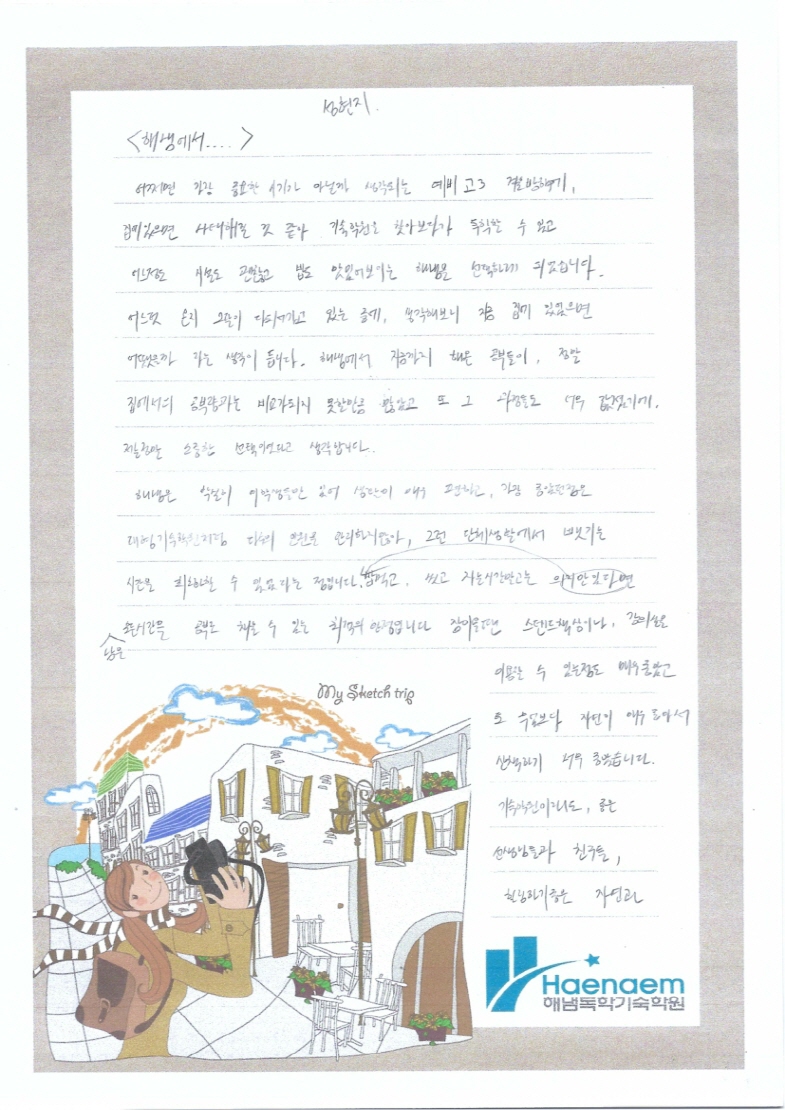 성현지.
<해냄에서....>
어쩌면 가장 중요한 시기가 아닐까 생각되는 예비 고3 겨울방학에,
집에있으면 나태해질 것 같아 기숙학원을 찾아보다가 독학할 수 있고
시설도 괜찮고 밥도 맛있어보이는 해냄을 선택하게 되었습니다.
어느덧 온지 2달이 다되어가고 있는 글에, 생각해보니 지금 집에 있었으면
어땠을까 라는 생각이 듭니다. 해냄에서 지금까지 해온 공부들이, 정말
집에서의 공부량과는 비교가되지 못할만큼 많았고 또 그 과정들도 너무 값졌기에,
정말 소중한 선택이였다고 생각합니다.
해냄은 있어 상담이 매우 편하고, 가장 좋았던점은
대형기숙학원처럼 다수의 인원을 관리하지않아, 그런 단체생활에서 뺏기는
시간을 최소화할 수 있었다는 점입니다. 밥먹고, 씻고 자는시간말고는 의지만 있다면
남은
모든시간을 공부로 채울 수 있는 최적의 안정입니다 잠이올땐 스탠드책상이나,
이용할 수 있는점도 매우좋았고
또 수업보다 자단이 매우 많아서
선택하기 너무 좋았습니다.
기숙학원이라도, 좋은
선생님들과 친구들,
힐링하기좋은 자연과
My Sketch trip
Haenaem
해냄독학기숙학원